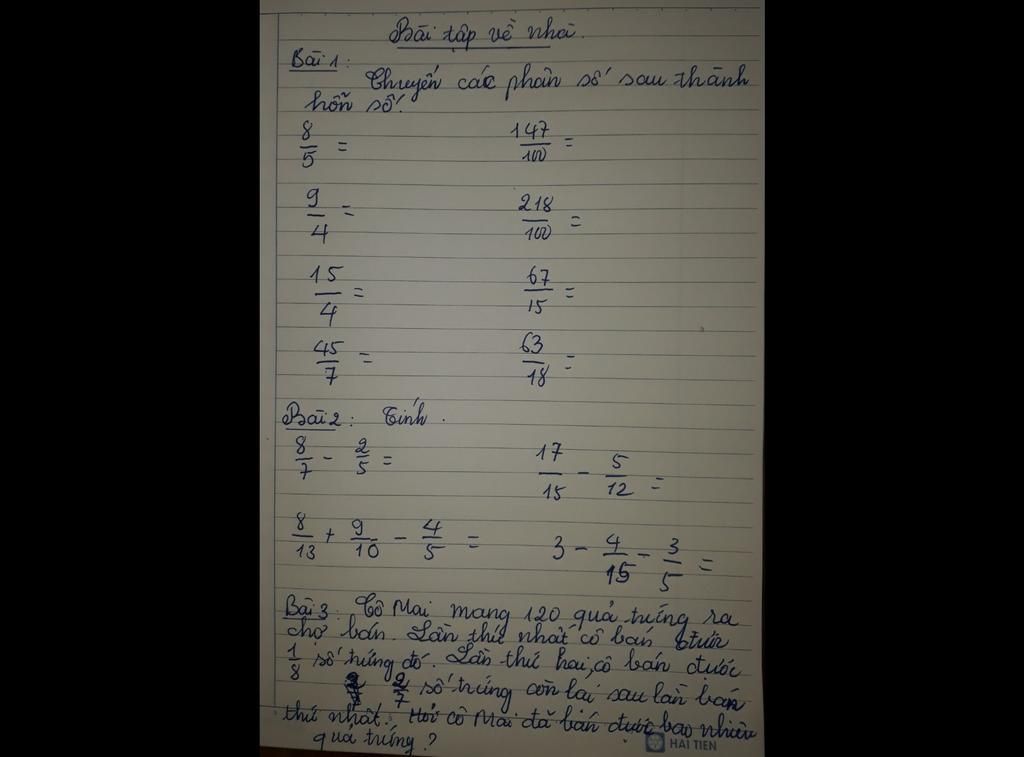 Bài tập về nhà.
Bài 1:
Chuyển các phân số sau thành
hỗn số.
8/5 = 147/100 =
9/4 = 218/100 =
15/4 = 67/15 =
45/7 = 63/18 =
Bài 2: Tính.
8/7 - 2/5 = 17/15 - 5/12 =
8/13 + 9/10 - 4/5 = 3 - 4/15 - 3/5 =
Bài 3: Cô Mai mang 120 quả trứng ra
chợ bán. Lần thứ nhất cô bán được
1/8 số trứng đó. Lần thứ hai, cô bán được
2/7 số trứng còn lại sau lần bán
thứ nhất. Hỏi cô Mai đã bán được bao nhiêu
quả trứng?
HẢI TIẾN